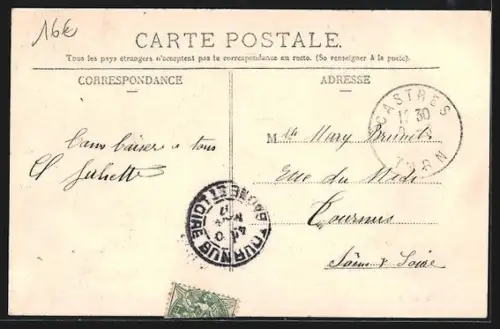 16€
CARTE POSTALE.
Tous les pays étrangers n'acceptent pas la correspondance au recto. (Se renseigner à la poste).
CORRESPONDANCE
ADRESSE
Bons baisers à tous
Juliette
Mlle Mary Brunets
Rue du Midi
Tournus
Saône & Loire
CASTRES
12 30
TARN
TOURNUS
SAONE ET LOIRE